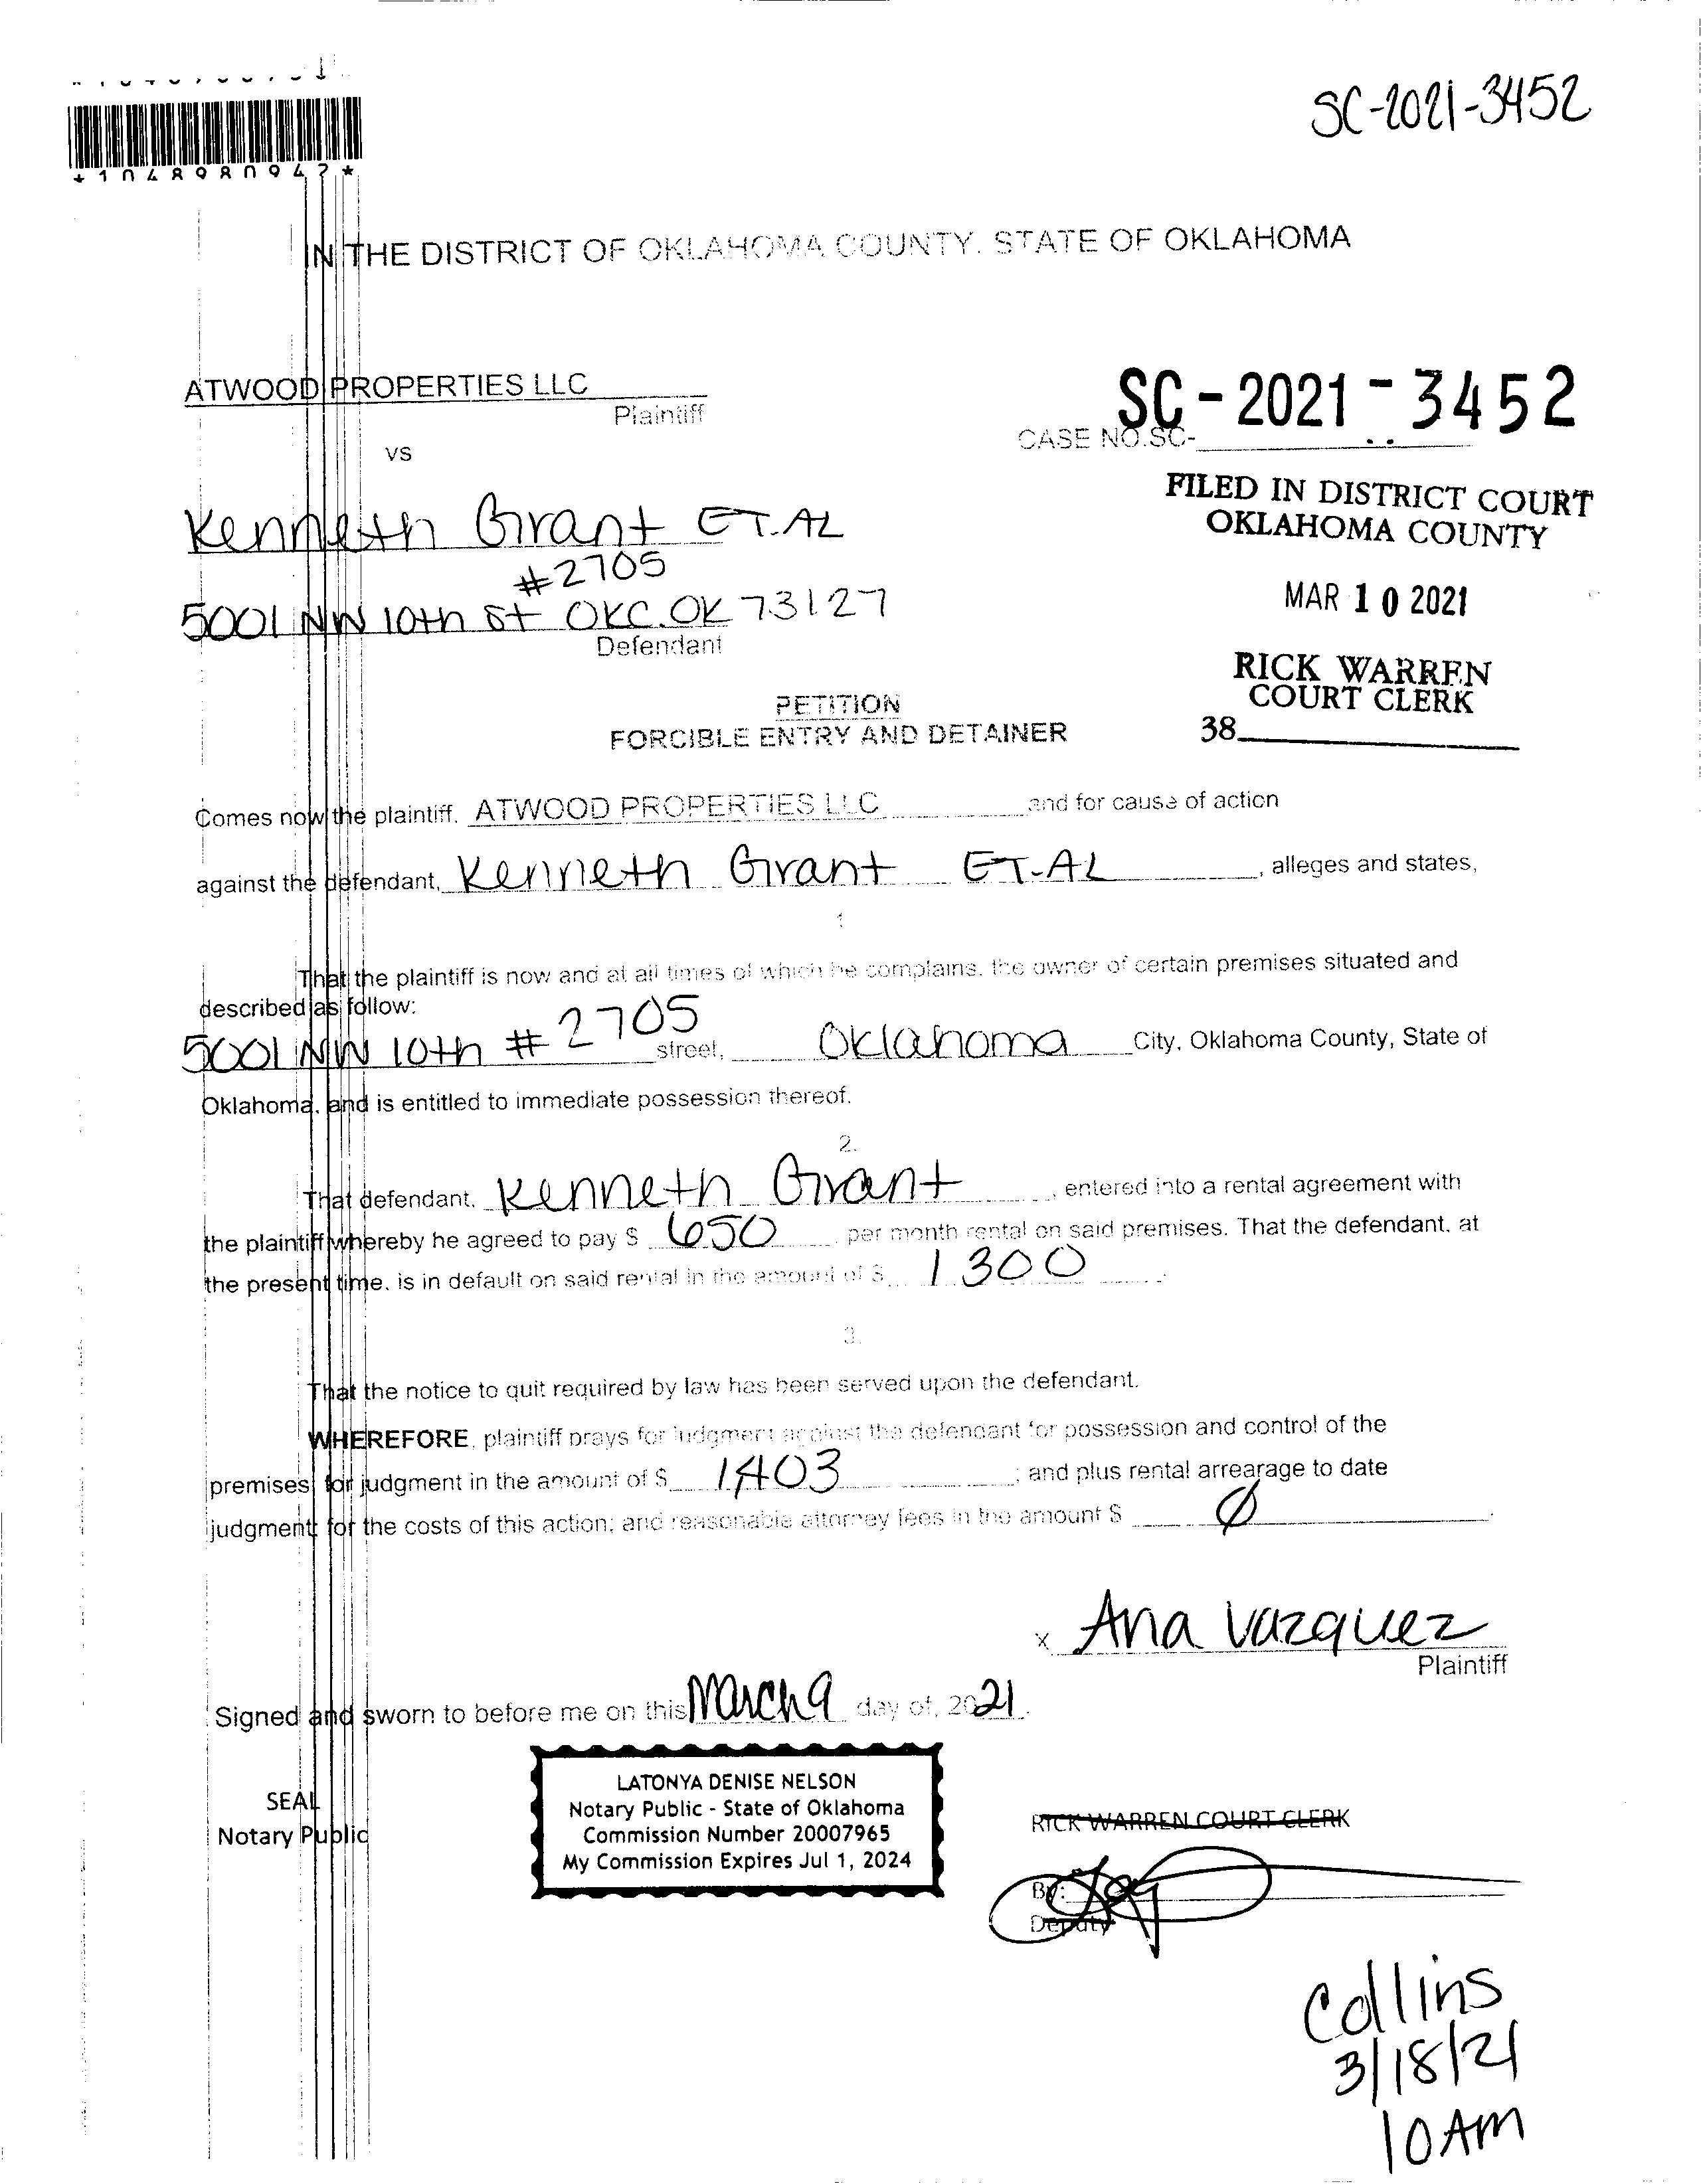 SC-2021-3452
*1048980942*
IN THE DISTRICT OF OKLAHOMA COUNTY. STATE OF OKLAHOMA
ATWOOD PROPERTIES LLC
Plaintiff
vs
SC-2021-3452
CASE NO.SC-
FILED IN DISTRICT COURT
OKLAHOMA COUNTY
Kenneth Grant ET.AL
#2705
5001 NW 10th St OKC.OK 73127
Defendant
MAR 10 2021
RICK WARREN
COURT CLERK
38
PETITION
FORCIBLE ENTRY AND DETAINER
Comes now the plaintiff. ATWOOD PROPERTIES LLC and for cause of action
against the defendant, Kenneth Grant ET-AL, alleges and states,
1
That the plaintiff is now and at all times of which he complains. the owner of certain premises situated and
described as follow:
5001 NW 10th #2705 street, Oklahoma City, Oklahoma County, State of
Oklahoma, and is entitled to immediate possession thereof.
2.
That defendant, Kenneth Grant, entered into a rental agreement with
the plaintiff whereby he agreed to pay $ 650 per month rental on said premises. That the defendant, at
the present time, is in default on said rental in the amount of $ 1300.
3.
That the notice to quit required by law has been served upon the defendant.
WHEREFORE, plaintiff prays for judgment against the defendant for possession and control of the
premises; for judgment in the amount of $ 1403; and plus rental arrearage to date
judgment for the costs of this action; and reasonable attorney fees in the amount $ Ø.
x Ana Vazquez
Plaintiff
Signed and sworn to before me on this March 9 day of, 2021.
LATONYA DENISE NELSON
Notary Public - State of Oklahoma
Commission Number 20007965
My Commission Expires Jul 1, 2024
SEAL
Notary Public
RICK WARREN COURT CLERK
By:
Deputy
Collins
3/18/21
10AM